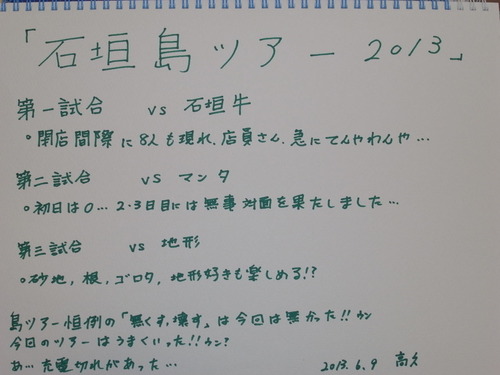 「石垣島ツアー 2013」
第一試合 vs 石垣牛
○閉店間際に8人も現れ、店員さん、急にてんやわんや…
第二試合 vs マンタ
○初日は0…2・3日目には無事対面を果たしました…
第三試合 vs 地形
○砂地、根、ゴロタ、地形好きも楽しめる!?
島ツアー恒例の「無くす、壊す」は今回は無かった!!ウン
今回のツアーはうまくいった!!ウン?
あ…充電切れがあった…
2013.6.9 高久